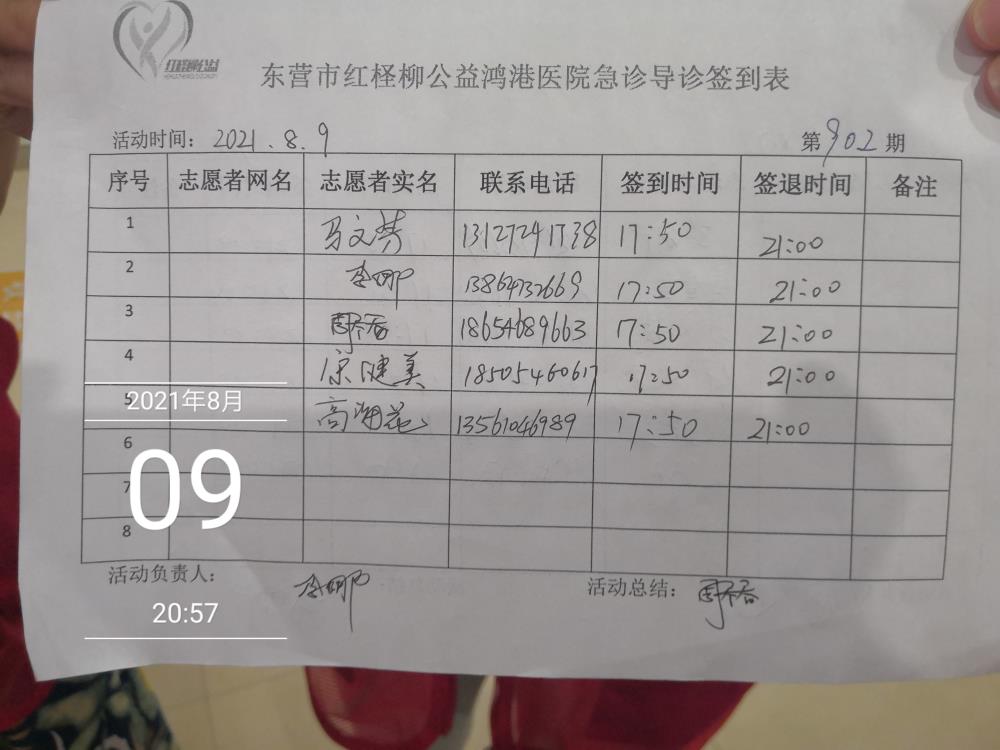 红柽柳公益
东营市红柽柳公益鸿港医院急诊导诊签到表
活动时间: 2021.8.9 第902期
序号 志愿者网名 志愿者实名 联系电话 签到时间 签退时间 备注
1 马文芳 13127241738 17:50 21:00
2 李娜 13864732669 17:50 21:00
3 18654689663 17:50 21:00
4 宋健美 18505460617 17:50 21:00
5 高海花 13561046989 17:50 21:00
6
7
8
活动负责人: 李娜 活动总结:
2021年8月
09
20:57